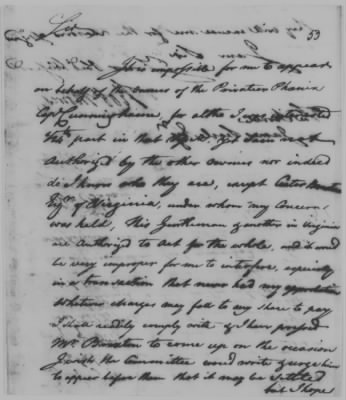 Sir 53
It is impossible for me to appear
on behalf of the owners of the Privateer Phenix
Capt Cunninghame, for altho I
part in that yet I am not
Authorized by the other owners nor indeed
do I know who they are, except Carter Braxton
Esqr. of Virginia, under whom my Concern
was held, This Gentleman & another in Virginia
are Authorized to Act for the whole, and it would
be very improper for me to interfere, especially
in a transaction that never had my approbation
whatever charges may fall to my share to pay
I shall readily comply with & I have pressed
Mr Braxton to come up on the occasion
I wish the Committee would write & urge him
to appear before them that it may be settled
but I hope